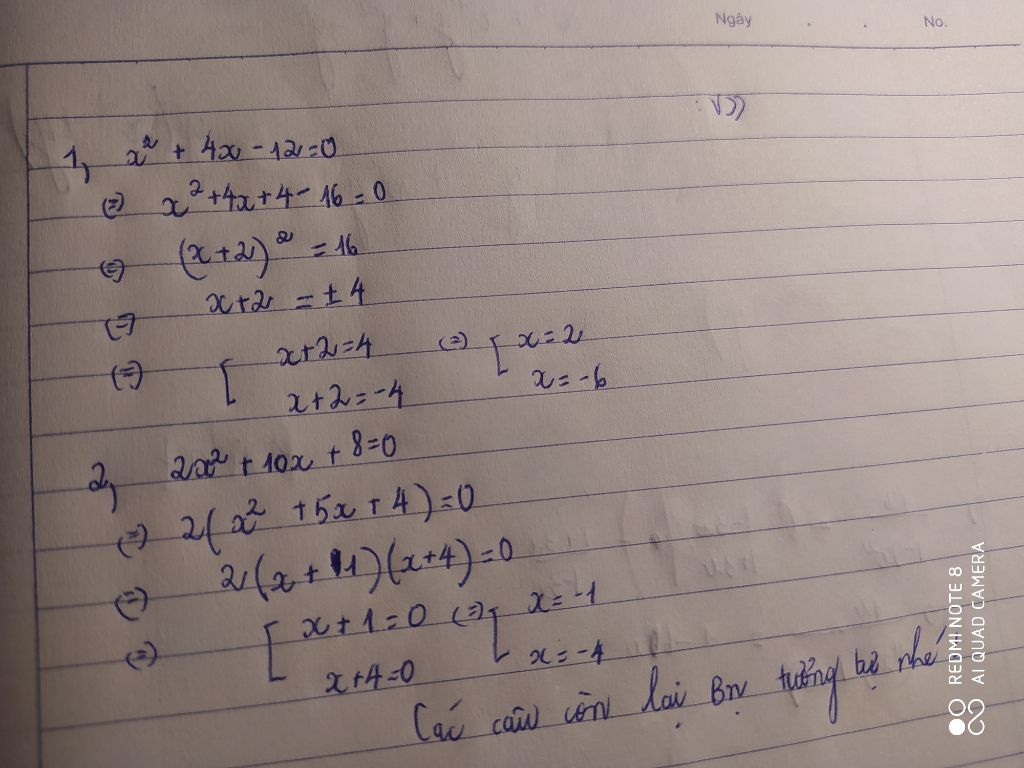 Ngày . . No.
: V))
1, x² + 4x - 12 = 0
(=) x² + 4x + 4 - 16 = 0
(=) (x + 2)² = 16
(=) x + 2 = ± 4
(=) [ x + 2 = 4 (=) [ x = 2
x + 2 = -4 x = -6
2, 2x² + 10x + 8 = 0
(=) 2(x² + 5x + 4) = 0
(=) 2(x + 1)(x + 4) = 0
(=) [ x + 1 = 0 (=) [ x = -1
x + 4 = 0 x = -4
Các câu còn lại Bn tương tự nhé
REDMI NOTE 8
AI QUAD CAMERA